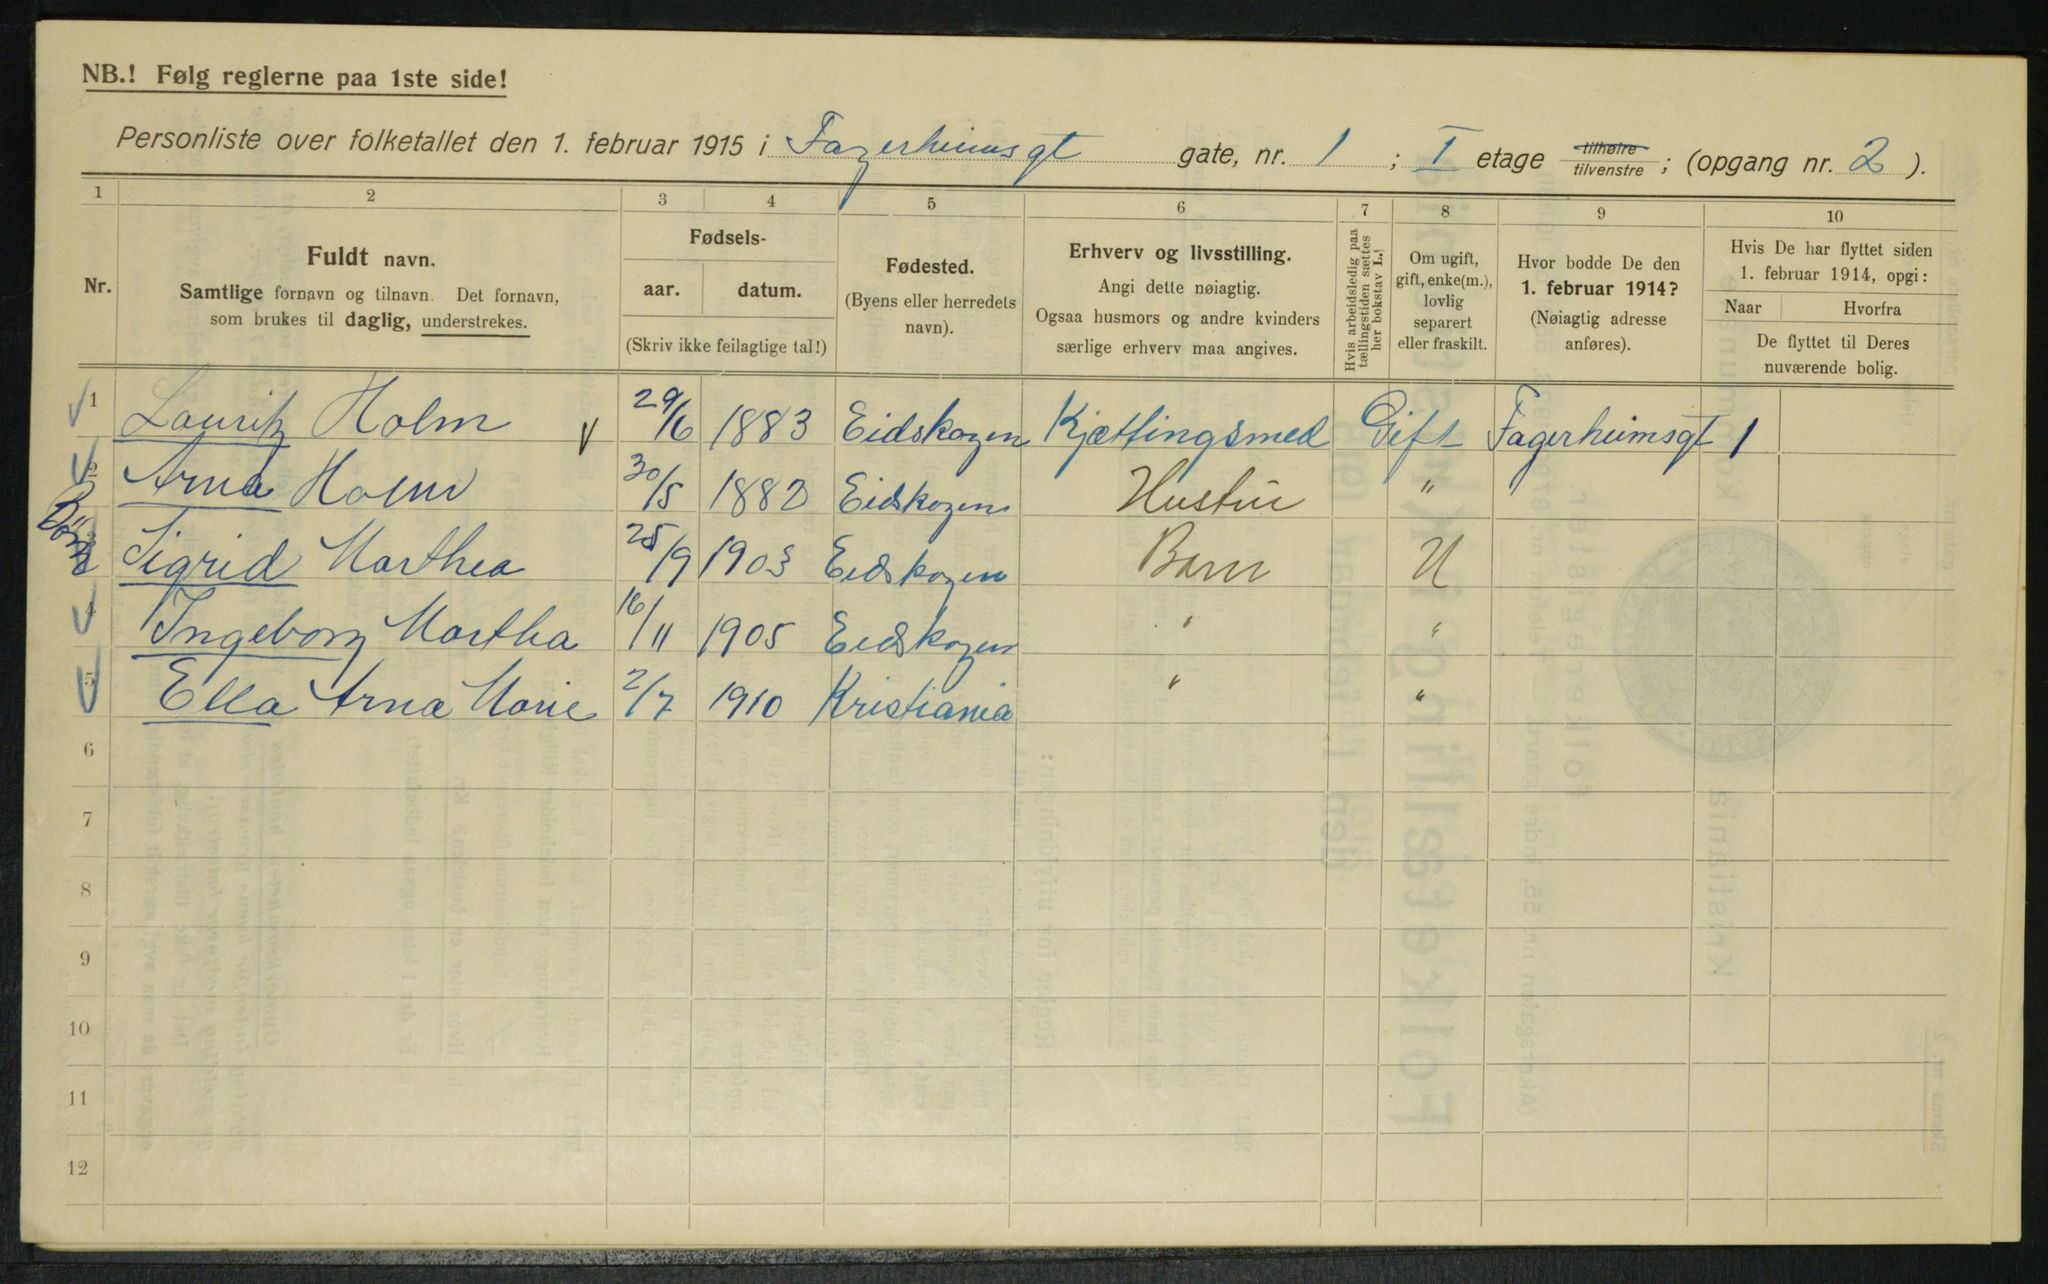 NB.! Følg reglerne paa 1ste side!
Personliste over folketallet den 1. februar 1915 i Fagerheimsgt gate, nr. 1 ; I etage tilhøire tilvenstre ; (opgang nr. 2 ).
1 2 3 4 5 6 7 8 9 10
Nr.
Fuldt navn.
Samtlige fornavn og tilnavn. Det fornavn,
som brukes til daglig, understrekes.
Fødsels-
aar. datum.
(Skriv ikke feilagtige tal!)
Fødested.
(Byens eller herredets
navn).
Erhverv og livsstilling.
Angi dette nøiagtig.
Ogsaa husmors og andre kvinders
særlige erhverv maa angives.
Hvis arbeidsledig paa
tællingstiden sættes
her bokstav L.!
Om ugift,
gift, enke(m.),
lovlig
separert
eller fraskilt.
Hvor bodde De den
1. februar 1914?
(Nøiagtig adresse
anføres).
Hvis De har flyttet siden
1. februar 1914, opgi:
Naar Hvorfra
De flyttet til Deres
nuværende bolig.
1 Lauritz Holm 29/6 1883 Eidskogen Kjættingsmed Gift Fagerheimsgt 1
2 Arna Holm 30/5 1882 Eidskogen Hustru "
Börn
3 Sigrid Marthea 25/9 1903 Eidskogen Barn U
4 Ingeborg Martha 16/11 1905 Eidskogen " "
5 Ella Arna Marie 2/7 1910 Kristiania " "
6
7
8
9
10
11
12